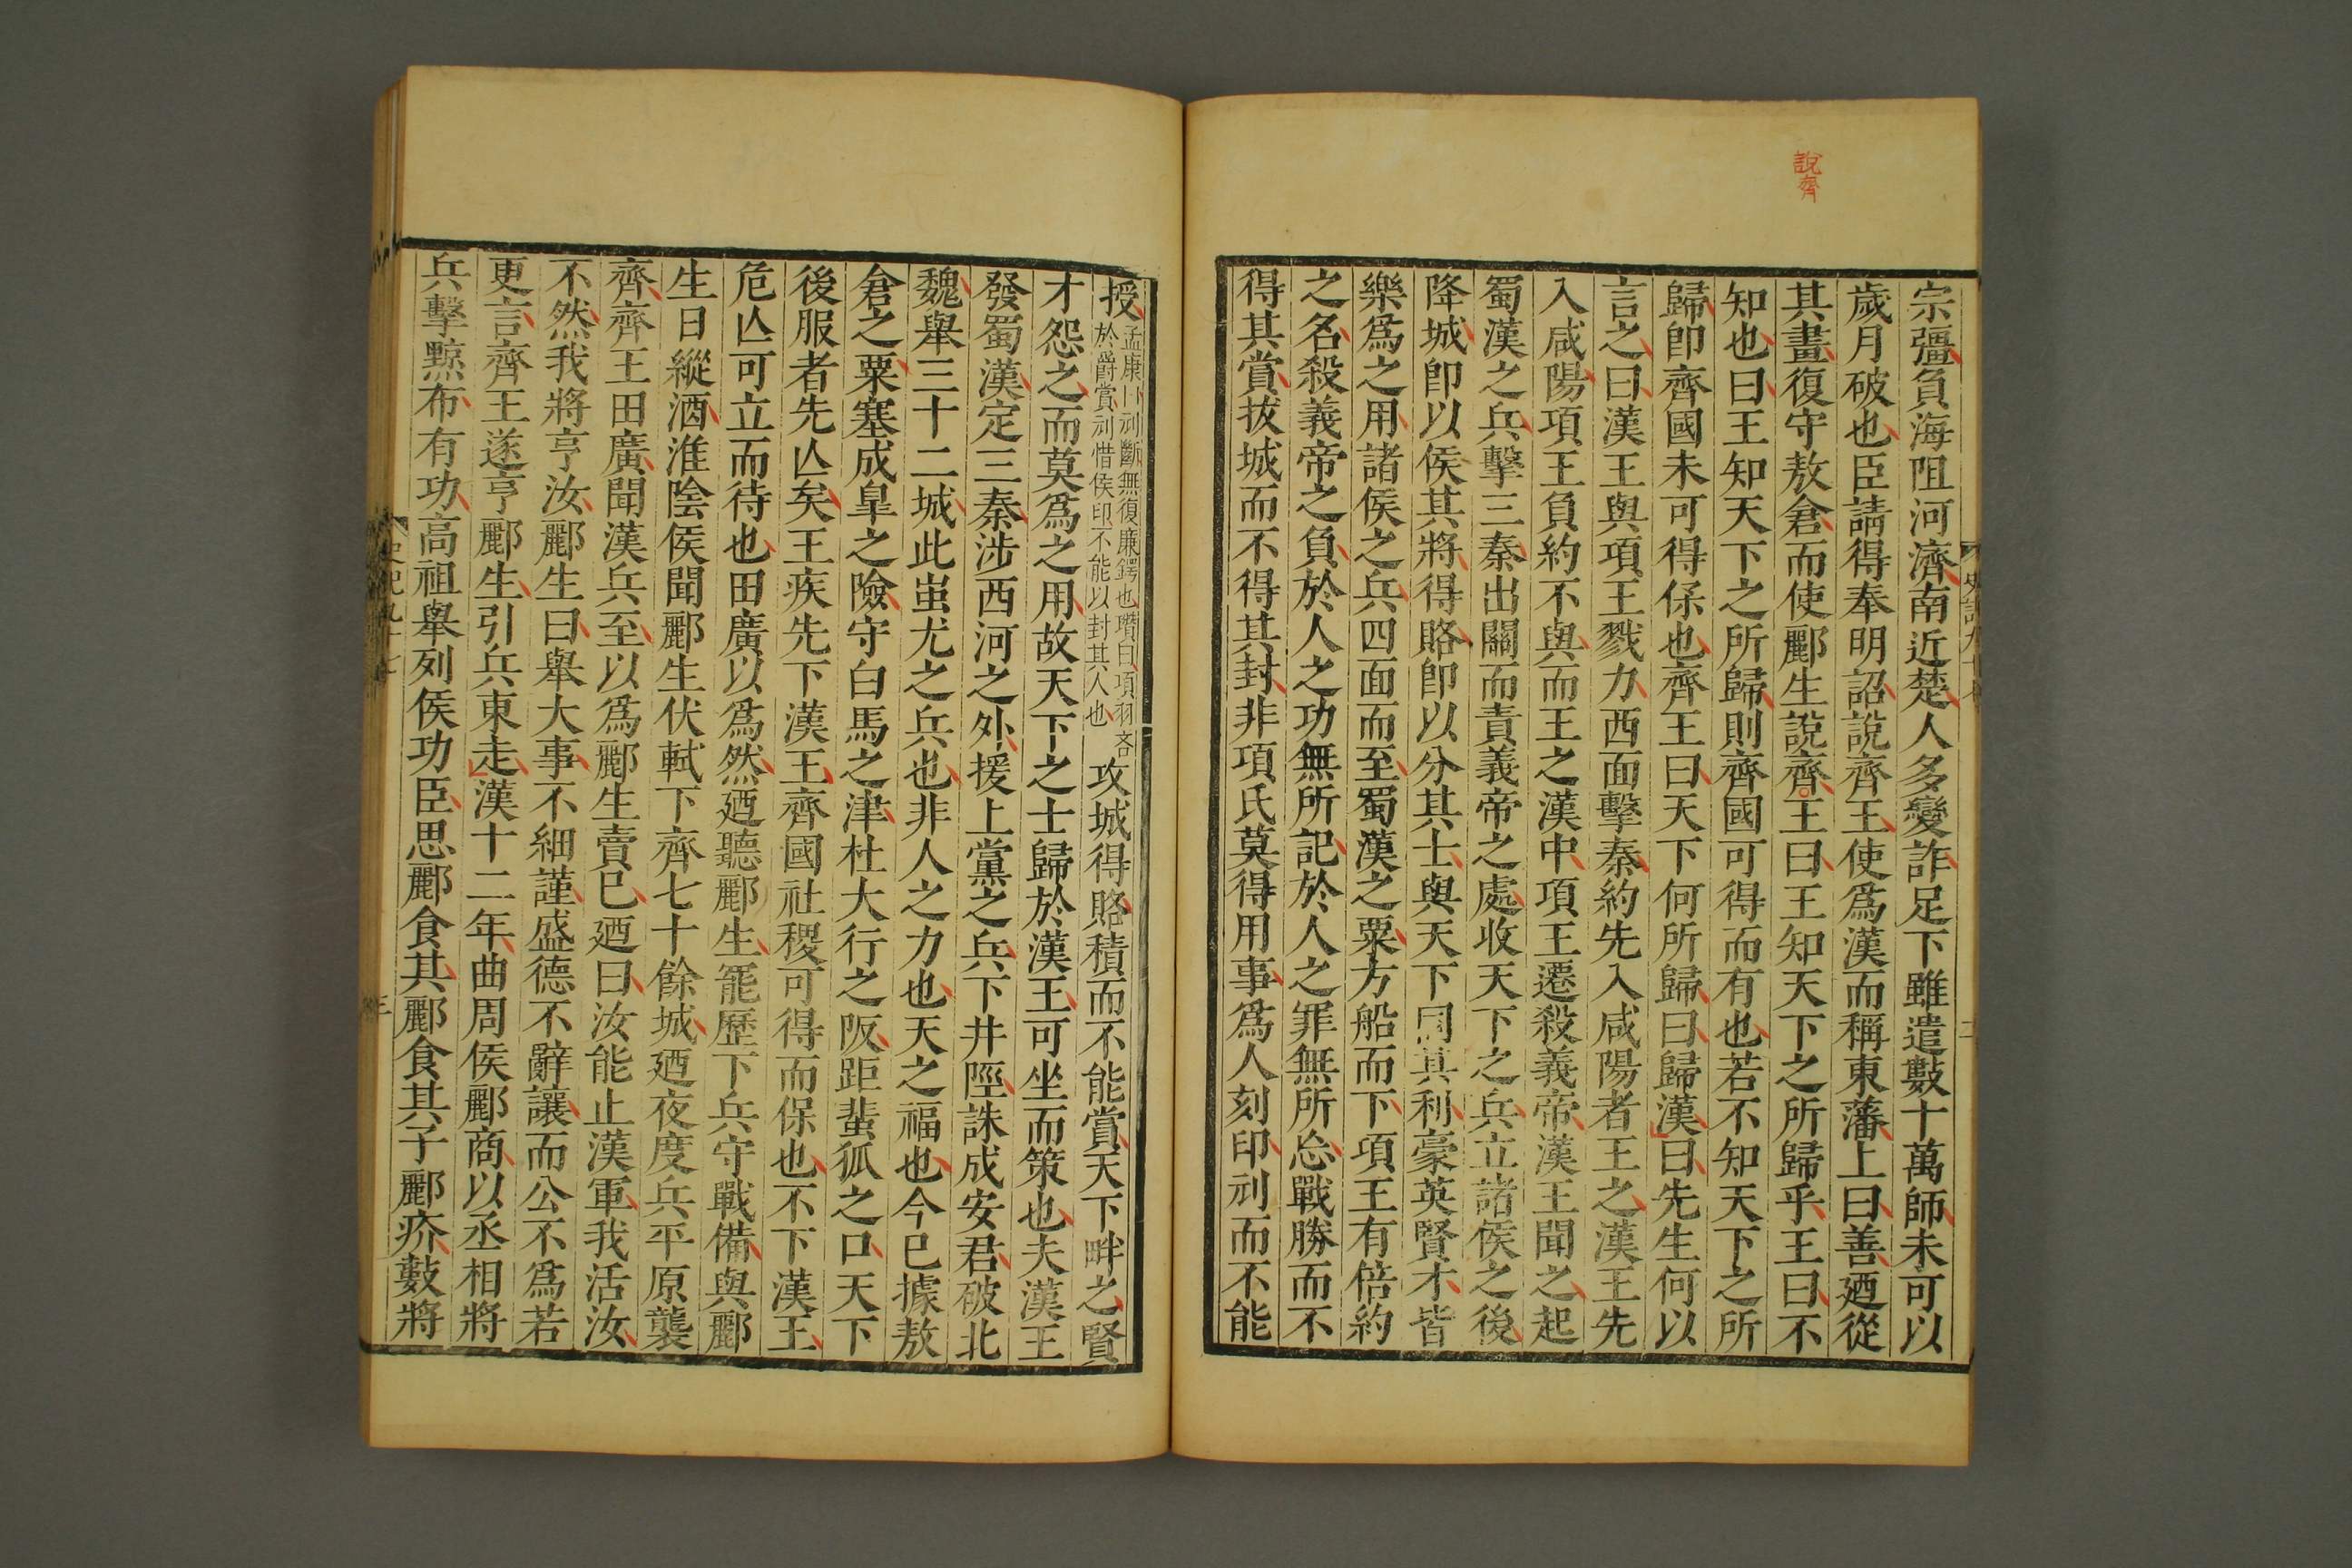 說齊
宗彊負海阻河濟南近楚人多變詐足下雖遣數十萬師未可以
歲月破也臣請得奉明詔說齊王使爲漢而稱東藩上曰善廼從
其畫復守敖倉而使酈生說齊王曰王知天下之所歸乎王曰不
知也曰王知天下之所歸則齊國可得而有也若不知天下之所
歸即齊國未可得保也齊王曰天下何所歸曰歸漢曰先生何以
言之曰漢王與項王戮力西面擊秦約先入咸陽者王之漢王先
入咸陽項王負約不與而王之漢中項王遷殺義帝漢王聞之起
蜀漢之兵擊三秦出關而責義帝之處收天下之兵立諸侯之後
降城即以侯其將得賂即以分其士與天下同其利豪英賢才皆
樂爲之用諸侯之兵四面而至蜀漢之粟方船而下項王有倍約
之名殺義帝之負於人之功無所記於人之罪無所忘戰勝而不
得其賞拔城而不得其封非項氏莫得用事爲人刻印刓而不能
授孟康曰刓斷無復廉鍔也瓚曰項羽吝於爵賞刓惜侯印不能以封其人也攻城得賂積而不能賞天下畔之賢
才怨之而莫爲之用故天下之士歸於漢王可坐而策也夫漢王
發蜀漢定三秦涉西河之外援上黨之兵下井陘誅成安君破北
魏舉三十二城此蚩尤之兵也非人之力也天之福也今已據敖
倉之粟塞成皐之險守白馬之津杜大行之阪距蜚狐之口天下
後服者先亾矣王疾先下漢王齊國社稷可得而保也不下漢王
危亾可立而待也田廣以爲然廼聽酈生罷歷下兵守戰備與酈
生日縱酒淮陰侯聞酈生伏軾下齊七十餘城廼夜度兵平原襲
齊齊王田廣聞漢兵至以爲酈生賣已廼曰汝能止漢軍我活汝
不然我將亨汝酈生曰舉大事不細謹盛德不辭讓而公不爲若
更言齊王遂亨酈生引兵東走漢十二年曲周侯酈商以丞相將
兵擊黥布有功高祖舉列侯功臣思酈食其酈食其子酈疥數將
史記九十七
三